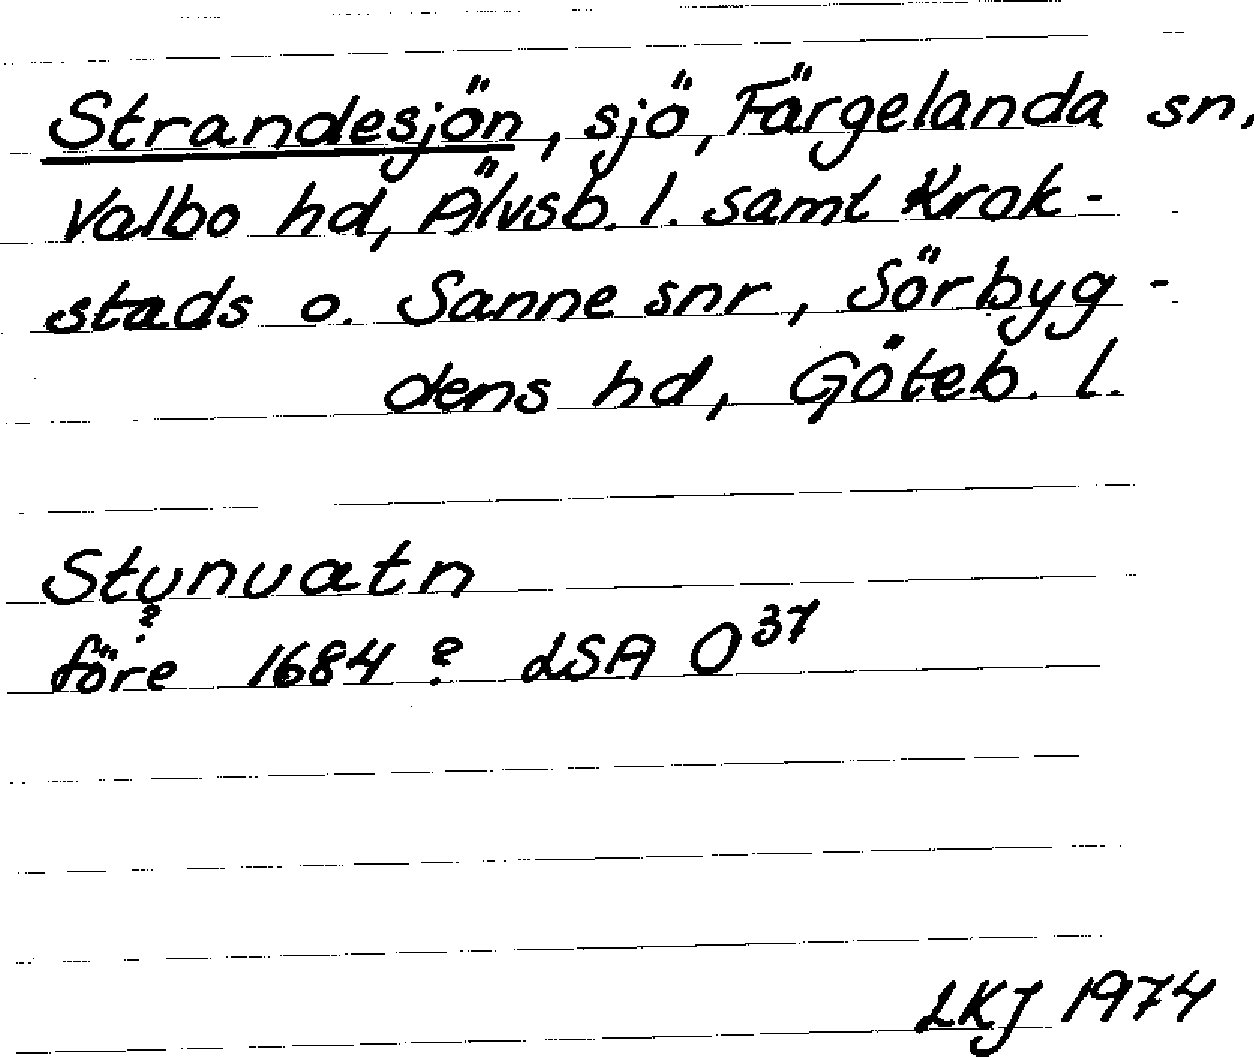 Strandesjön, sjö, Färgelanda sn,
Valbo hd, Älvsb. l. samt Krok-
stads o. Sanne snr, Sörbyg-
dens hd, Göteb. l.
Stynvatn
?
före 1684? LSA O37
LKJ 1974